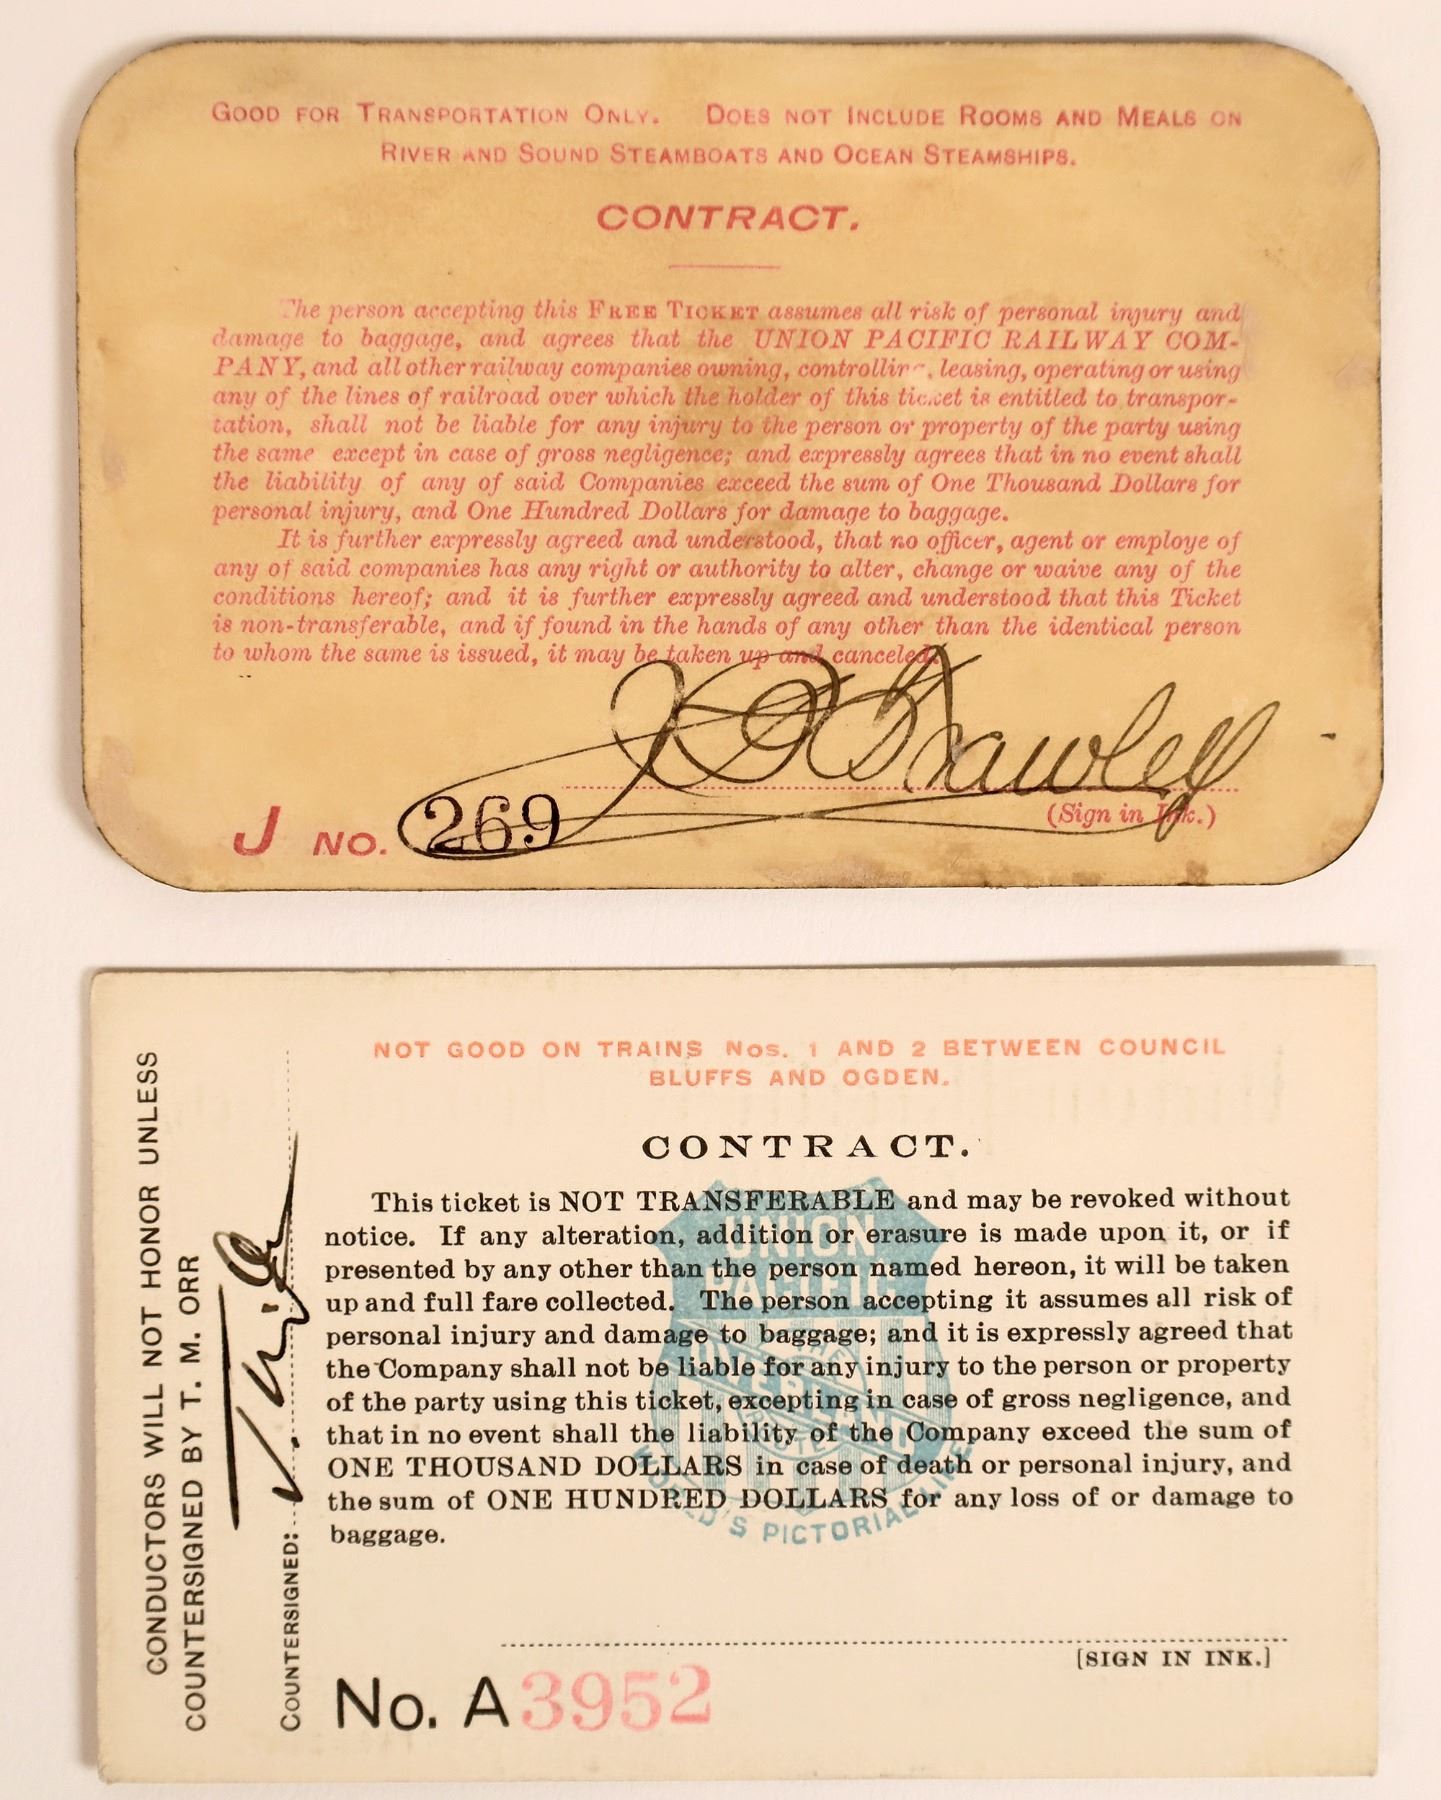 GOOD FOR TRANSPORTATION ONLY. DOES NOT INCLUDE ROOMS AND MEALS ON
RIVER AND SOUND STEAMBOATS AND OCEAN STEAMSHIPS.
CONTRACT.
The person accepting this FREE TICKET assumes all risk of personal injury and
damage to baggage, and agrees that the UNION PACIFIC RAILWAY COM-
PANY, and all other railway companies owning, controlling, leasing, operating or using
any of the lines of railroad over which the holder of this ticket is entitled to transpor-
tation, shall not be liable for any injury to the person or property of the party using
the same except in case of gross negligence; and expressly agrees that in no event shall
the liability of any of said Companies exceed the sum of One Thousand Dollars for
personal injury, and One Hundred Dollars for damage to baggage.
It is further expressly agreed and understood, that no officer, agent or employe of
any of said companies has any right or authority to alter, change or waive any of the
conditions hereof; and it is further expressly agreed and understood that this Ticket
is non-transferable, and if found in the hands of any other than the identical person
to whom the same is issued, it may be taken up and canceled.
(Sign in Ink.)
J NO. 269
CONDUCTORS WILL NOT HONOR UNLESS
COUNTERSIGNED BY T. M. ORR
COUNTERSIGNED:
NOT GOOD ON TRAINS Nos. 1 AND 2 BETWEEN COUNCIL
BLUFFS AND OGDEN.
CONTRACT.
This ticket is NOT TRANSFERABLE and may be revoked without
notice. If any alteration, addition or erasure is made upon it, or if
presented by any other than the person named hereon, it will be taken
up and full fare collected. The person accepting it assumes all risk of
personal injury and damage to baggage; and it is expressly agreed that
the Company shall not be liable for any injury to the person or property
of the party using this ticket, excepting in case of gross negligence, and
that in no event shall the liability of the Company exceed the sum of
ONE THOUSAND DOLLARS in case of death or personal injury, and
the sum of ONE HUNDRED DOLLARS for any loss of or damage to
baggage.
UNION
PACIFIC
THE
OVERLAND
ROUTE
WORLD'S PICTORIAL LINE
[SIGN IN INK.]
No. A3952